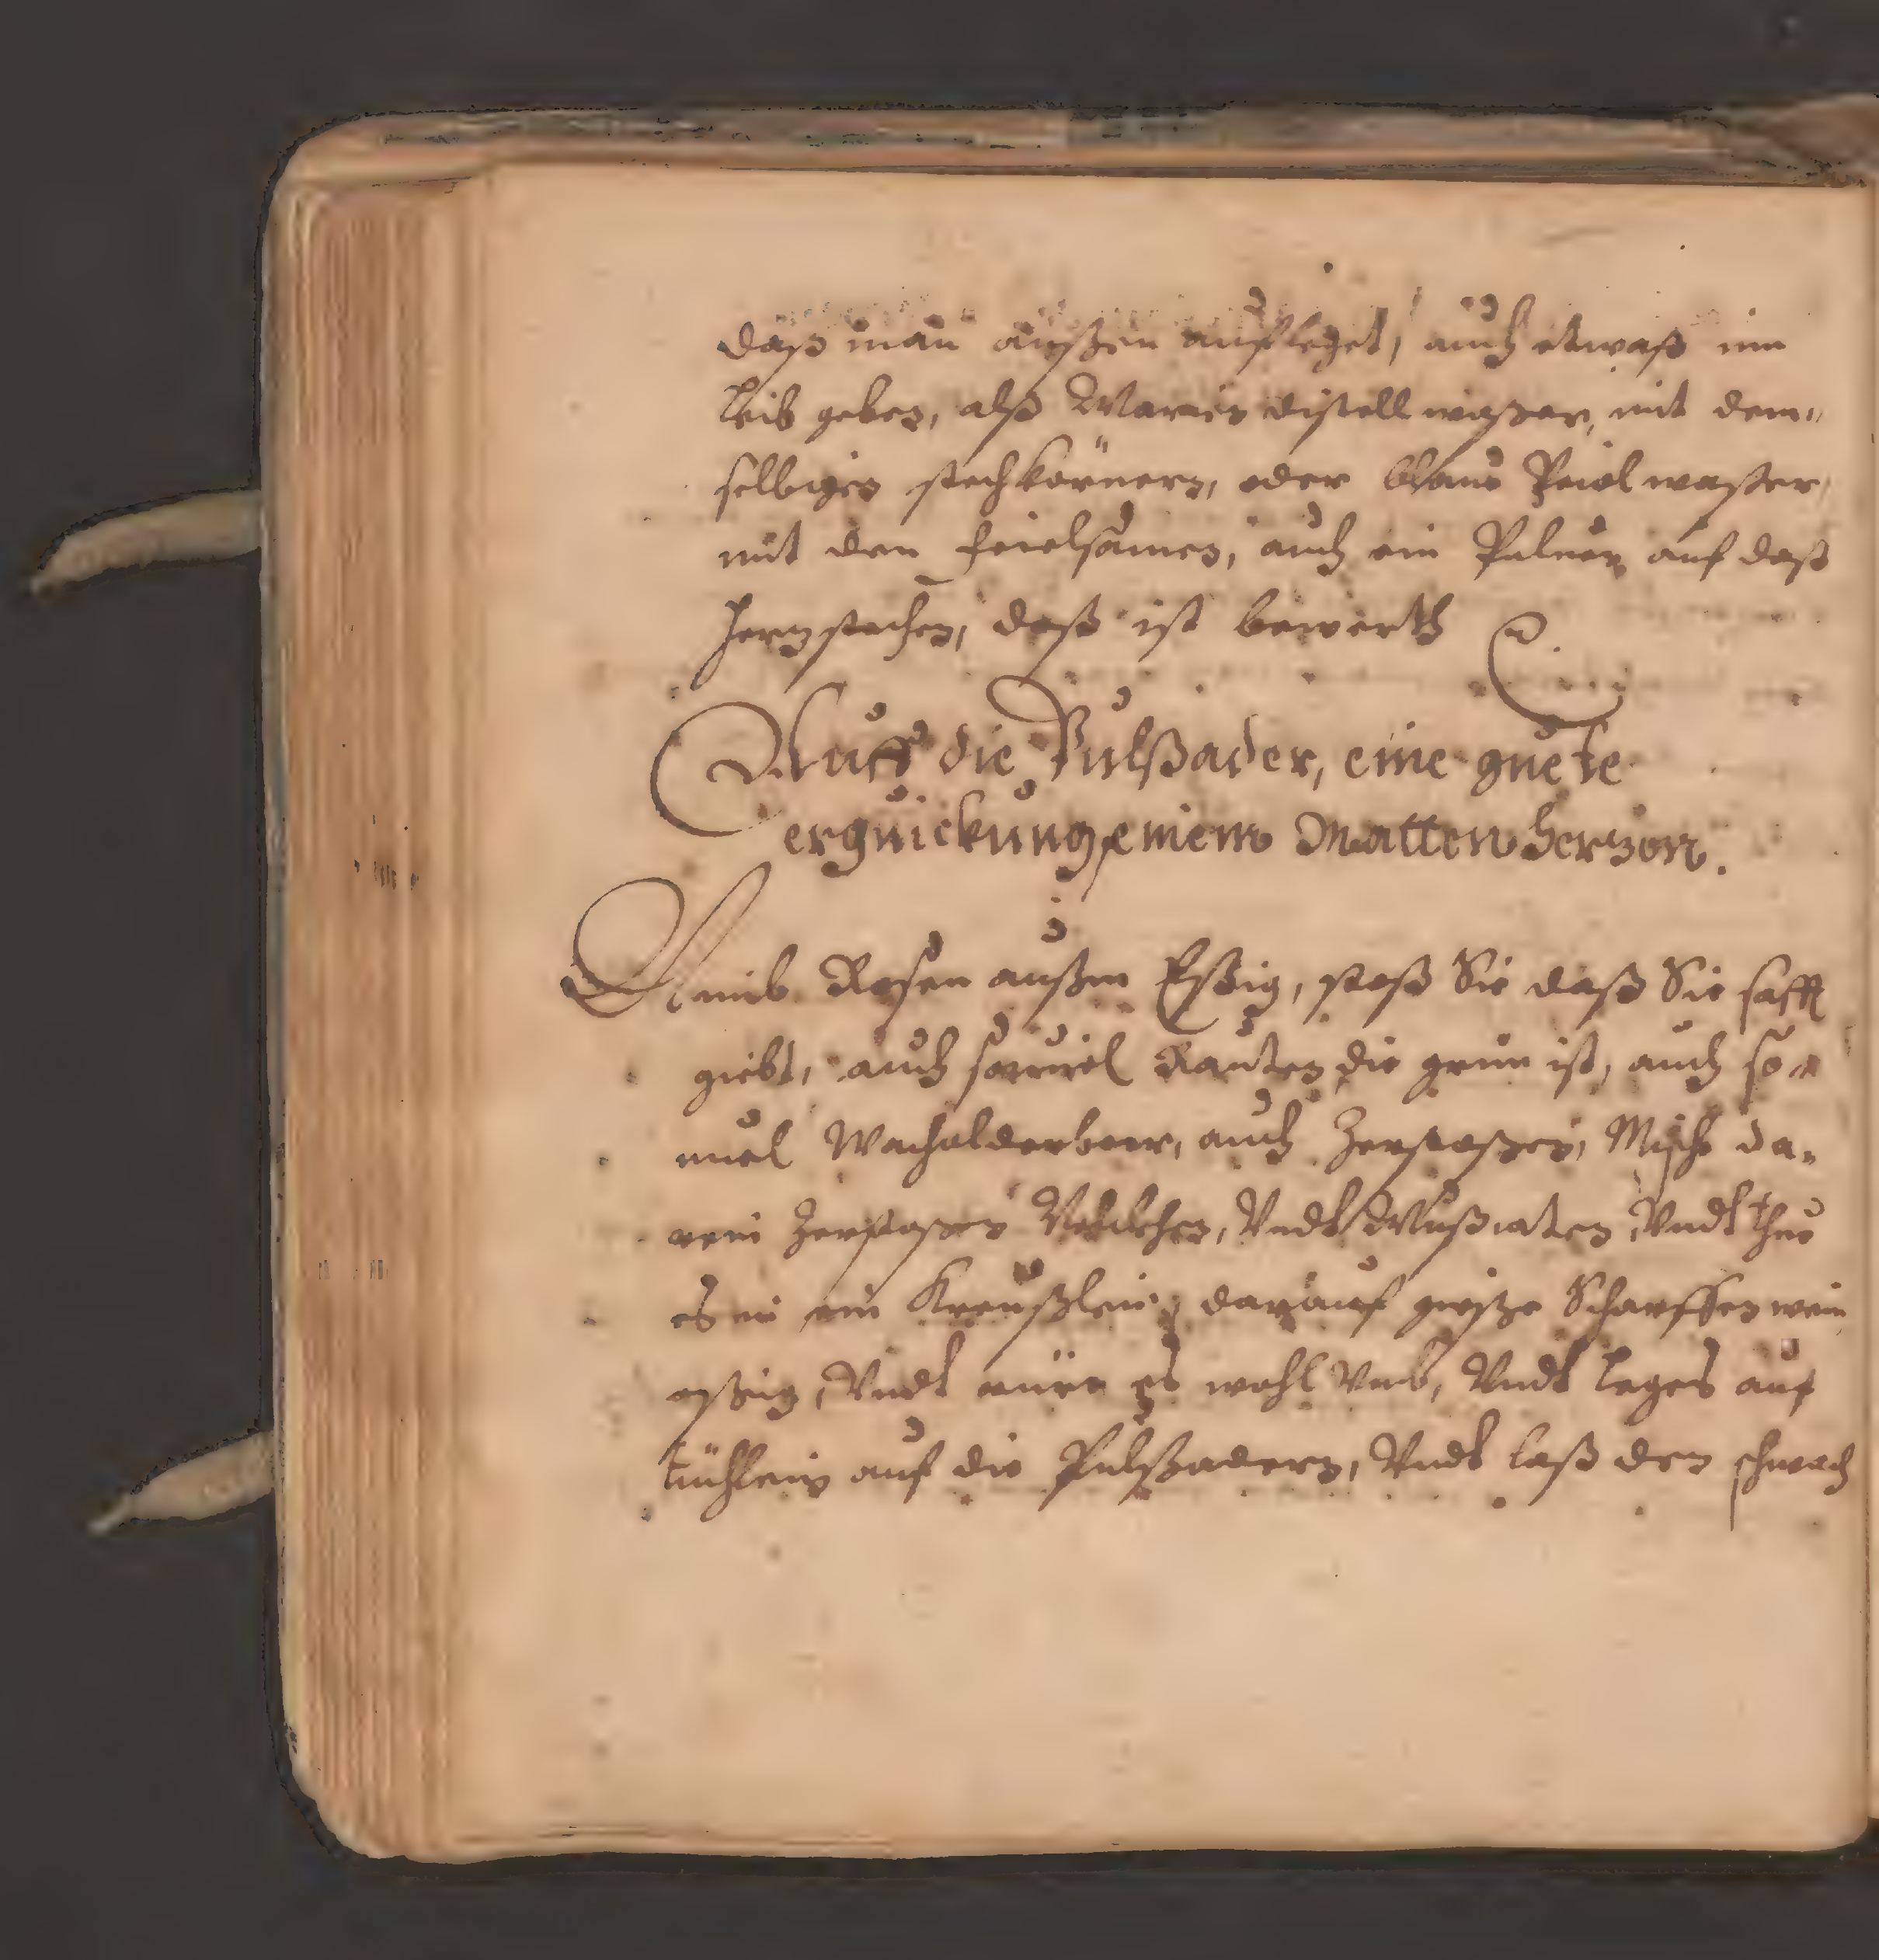 daß man außen aufleget, auch etwaß inn
leib geben, alß Marien distell waßer, mit dem„
selbigen stechkörnern, oder blaue Feiel waßer,
mit den feielsamen, auch ein Puluer auf daß
Hertzstechen, daß ist bewerth
Auff die Pulßader, eine guete
erquickung, einem Matten hertzen.
Nimb Rosen außm Eßig, stoß Sie daß Sie safft
giebt, auch souuiel Rauten die grun ist, auch so„
uiel Wacholderbeer, auch Zerstoßen, Misch da„
rein Zerstoßen Nelcken, Vndt Mußcaten, Vndt thue
es in ein Kreußlein, darauf gieße Scharffen wein
eßig, Vndt rüre es wohl Vmb, Vndt leges auf
tüchlein auf die Pulßadern, Vndt laß den schwach